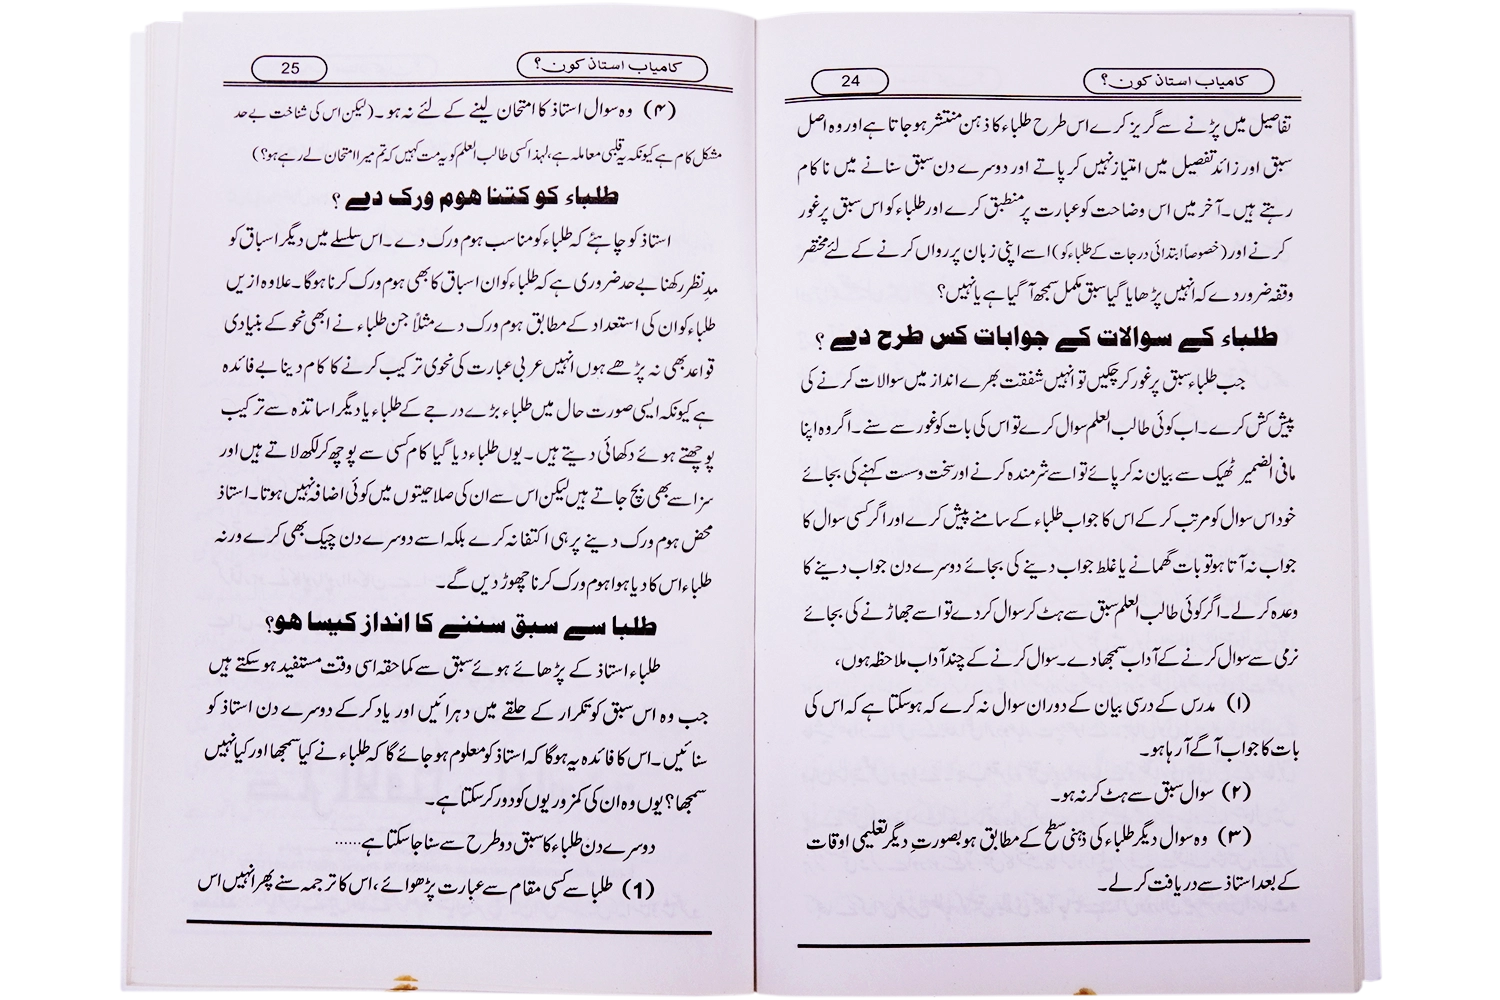 کامیاب استاذ کون؟
24
تفاصیل میں پڑنے سے گریز کرے اس طرح طلباء کا ذہن منتشر ہو جاتا ہے اور وہ اصل
سبق اور زائد تفصیل میں امتیاز نہیں کر پاتے اور دوسرے دن سبق سنانے میں نا کام
رہتے ہیں۔ آخر میں اس وضاحت کو عبارت پر منطبق کرے اور طلباء کو اس سبق پر غور
کرنے اور (خصوصاً ابتدائی درجات کے طلباء کو) اسے اپنی زبان پر رواں کرنے کے لئے مختصر
وقفہ ضرور دے کہ انہیں پڑھایا گیا سبق مکمل سمجھ آ گیا ہے یا نہیں؟
طلباء کے سوالات کے جوابات کس طرح دے ؟
جب طلباء سبق پر غور کر چکیں تو انہیں شفقت بھرے انداز میں سوالات کرنے کی
پیش کش کرے۔ اب کوئی طالب العلم سوال کرے تو اس کی بات کو غور سے سنے۔ اگر وہ اپنا
مافی الضمیر ٹھیک سے بیان نہ کر پائے تو اسے شرمندہ کرنے اور سخت وست کہنے کی بجائے
خود اس سوال کو مرتب کر کے اس کا جواب طلباء کے سامنے پیش کرے اور اگر کسی سوال کا
جواب نہ آتا ہو تو بات گھمانے یا غلط جواب دینے کی بجائے دوسرے دن جواب دینے کا
وعدہ کر لے۔ اگر کوئی طالب العلم سبق سے ہٹ کر سوال کر دے تو اسے جھاڑنے کی بجائے
نرمی سے سوال کرنے کے آداب سمجھا دے۔ سوال کرنے کے چند آداب ملاحظہ ہوں،
(۱) مدرس کے درسی بیان کے دوران سوال نہ کرے کہ ہو سکتا ہے کہ اس کی
بات کا جواب آگے آ رہا ہو۔
(۲) سوال سبق سے ہٹ کر نہ ہو۔
(۳) وہ سوال دیگر طلباء کی ذہنی سطح کے مطابق ہو بصورتِ دیگر تعلیمی اوقات
کے بعد استاذ سے دریافت کر لے۔
کامیاب استاذ کون؟
25
(۴) وہ سوال استاذ کا امتحان لینے کے لئے نہ ہو۔ (لیکن اس کی شناخت بے حد
مشکل کام ہے کیونکہ یہ قلبی معاملہ ہے، لہذا کسی طالب العلم کو یہ مت کہیں کہ تم میرا امتحان لے رہے ہو؟)
طلباء کو کتنا ھوم ورک دے ؟
استاذ کو چاہئے کہ طلباء کو مناسب ہوم ورک دے۔ اس سلسلے میں دیگر اسباق کو
مدِ نظر رکھنا بے حد ضروری ہے کہ طلباء کو ان اسباق کا بھی ہوم ورک کرنا ہوگا۔ علاوہ ازیں
طلباء کو ان کی استعداد کے مطابق ہوم ورک دے مثلاً جن طلباء نے ابھی نحو کے بنیادی
قواعد بھی نہ پڑھے ہوں انہیں عربی عبارت کی نحوی ترکیب کرنے کا کام دینا بے فائدہ
ہے کیونکہ ایسی صورت حال میں طلباء بڑے درجے کے طلباء یا دیگر اساتذہ سے ترکیب
پوچھتے ہوئے دکھائی دیتے ہیں۔ یوں طلباء دیا گیا کام کسی سے پوچھ کر لکھ لاتے ہیں اور
سزا سے بھی بچ جاتے ہیں لیکن اس سے ان کی صلاحیتوں میں کوئی اضافہ نہیں ہوتا۔ استاذ
محض ہوم ورک دینے پر ہی اکتفا نہ کرے بلکہ اسے دوسرے دن چیک بھی کرے ورنہ
طلباء اس کا دیا ہوا ہوم ورک کرنا چھوڑ دیں گے۔
طلبا سے سبق سننے کا انداز کیسا ھو؟
طلباء استاذ کے پڑھائے ہوئے سبق سے کما حقہ اسی وقت مستفید ہو سکتے ہیں
جب وہ اس سبق کو تکرار کے حلقے میں دہرائیں اور یاد کر کے دوسرے دن استاذ کو
سنائیں۔ اس کا فائدہ یہ ہوگا کہ استاذ کو معلوم ہو جائے گا کہ طلباء نے کیا سمجھا اور کیا نہیں
سمجھا؟ یوں وہ ان کی کمزوریوں کو دور کر سکتا ہے۔
دوسرے دن طلباء کا سبق دو طرح سے سنا جا سکتا ہے......
(1) طلبا سے کسی مقام سے عبارت پڑھوائے، اس کا ترجمہ سنے پھر انہیں اس